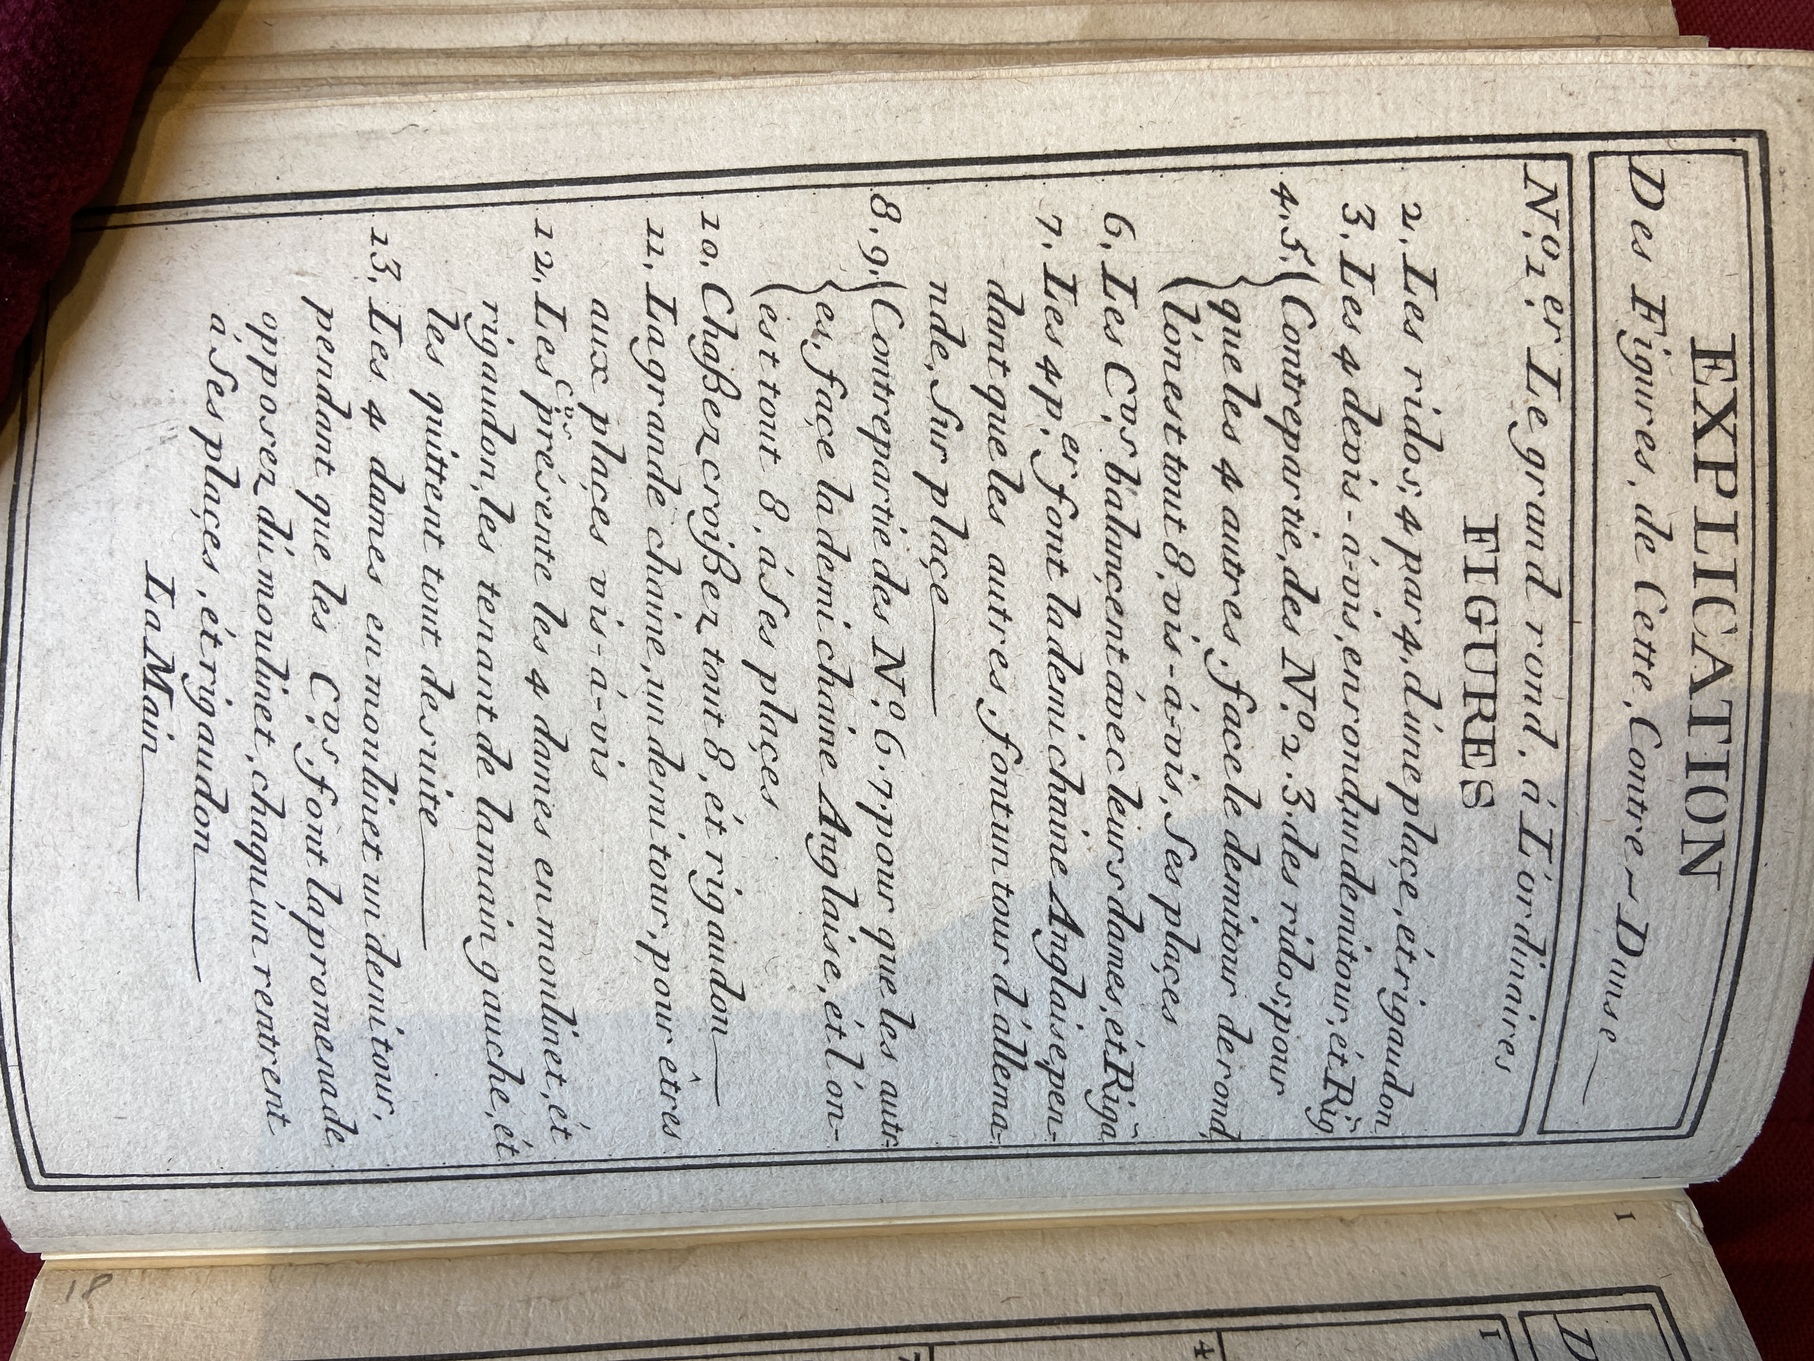 EXPLICATION
Des Figures, de Cette, Contre-Danse
N.º 1.er Le grand rond, á L'ordinaires
FIGURES
2. Les ridos, 4 par 4, d'une plaçe, ét rigaudon
3. Les 4 devis-á-vis, en rond, un demi tour, ét Rig
4. 5. { Contrepartie, des N.º 2. 3 des ridos, pour
que les 4 autres, façe le demi tour de rond,
l'on est tout 8, vis-á-vis, Ses plaçes
6. Les C.vrs balançent ávec leurs dames, ét Riga
7. Les 4 p.er font la demi chaine Anglaise, pen-
dant que les autres, font un tour d'állema-
nde, Sur plaçe
8. 9. { Contrepartie des N.º 6. 7 pour que les autr-
es, façe la demi chaine Anglaise, ét l'on-
est tout 8, á Ses plaçes
10. Chaßez croißez tout 8, ét rigaudon
11. La grande chaine, un demi tour, pour êtres
aux plaçes vis-á-vis
12. Les C.vrs présente les 4 dames en moulinet, ét
rigaudon, les tenant de la main gauche, ét
les quittent tout de suite
13. Les 4 dames en moulinet un demi tour,
pendant que les C.vrs font la promenade
opposez du moulinet, chaqu'un rentrent
á Ses plaçes, ét rigaudon
La Main
1
18
D
1
4
7